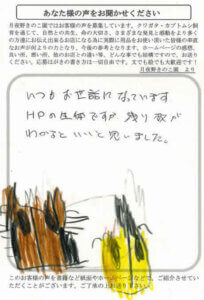 あなた様の声をお聞かせください
月夜野きのこ園ではお客様の声を募集しています。クワガタ・カブトムシ飼
育を通じて、自然との共生、命の大切さ、さまざまな発見と感動をより多く
の方達にお伝え出来るお店になる為に実際に用品をお使い頂いた皆様の率直
なお声が何よりの力となり、今後の参考となります。ホームページの感想、
良い所、悪い所、他のお店との違い等、どんな事でも結構ですので、お送り
ください。応募はがきの書き方は一切自由です。文でも絵でも大歓迎です！
月夜野きのこ園 より
いつもお世話になっています
HPの生体ですが 残り数が
わかるといいと思いました。
このお客様の声を書籍など紙面やホームページなどで、ご紹介させてい
ただくことがございます。ご了承の上お送り下さい。